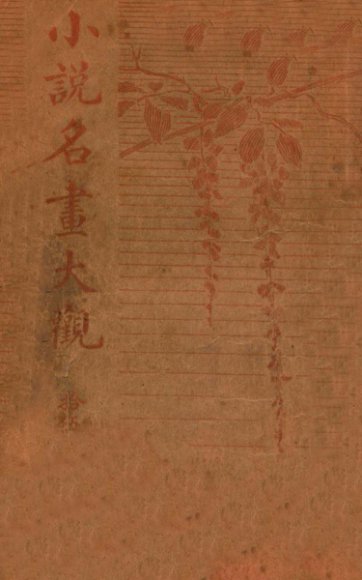 小説名畫大觀